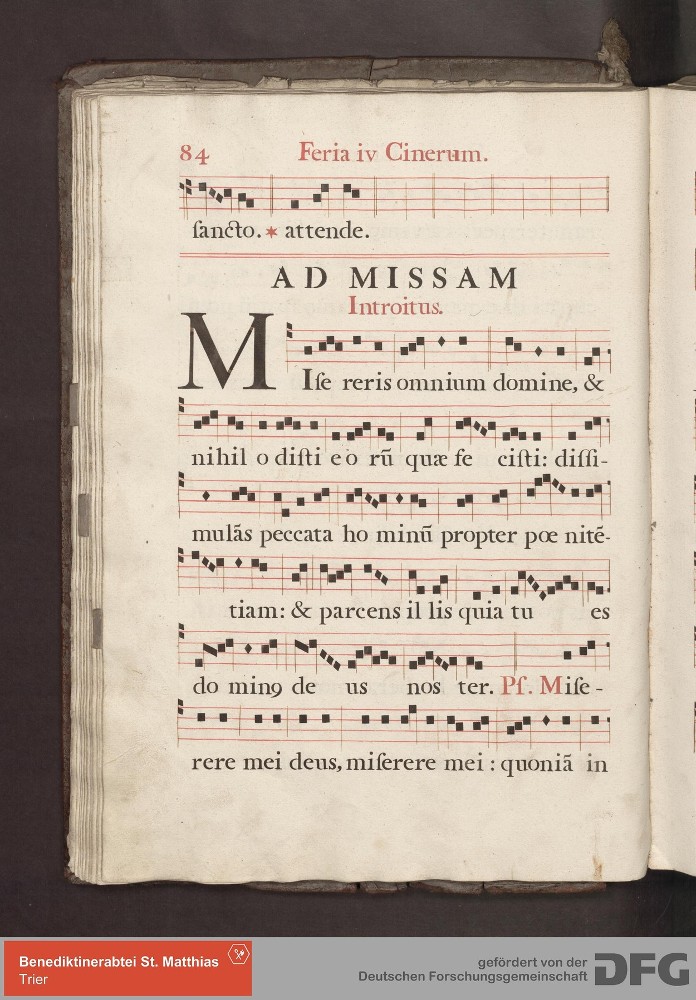 84 Feria iv Cinerum.
ſancto. * attende.
AD MISSAM
Introitus.
MIſe reris omnium domine, &
nihil o diſti e o rū quæ fe ciſti: diſſi-
mulãs peccata ho minū propter pœ nitē-
tiam: & parcens il lis quia tu es
do minꝯ de us nos ter. Pſ. Miſe-
rere mei deus, miſerere mei: quoniã in
Benediktinerabtei St. Matthias
Trier
gefördert von der
Deutschen Forschungsgemeinschaft
DFG